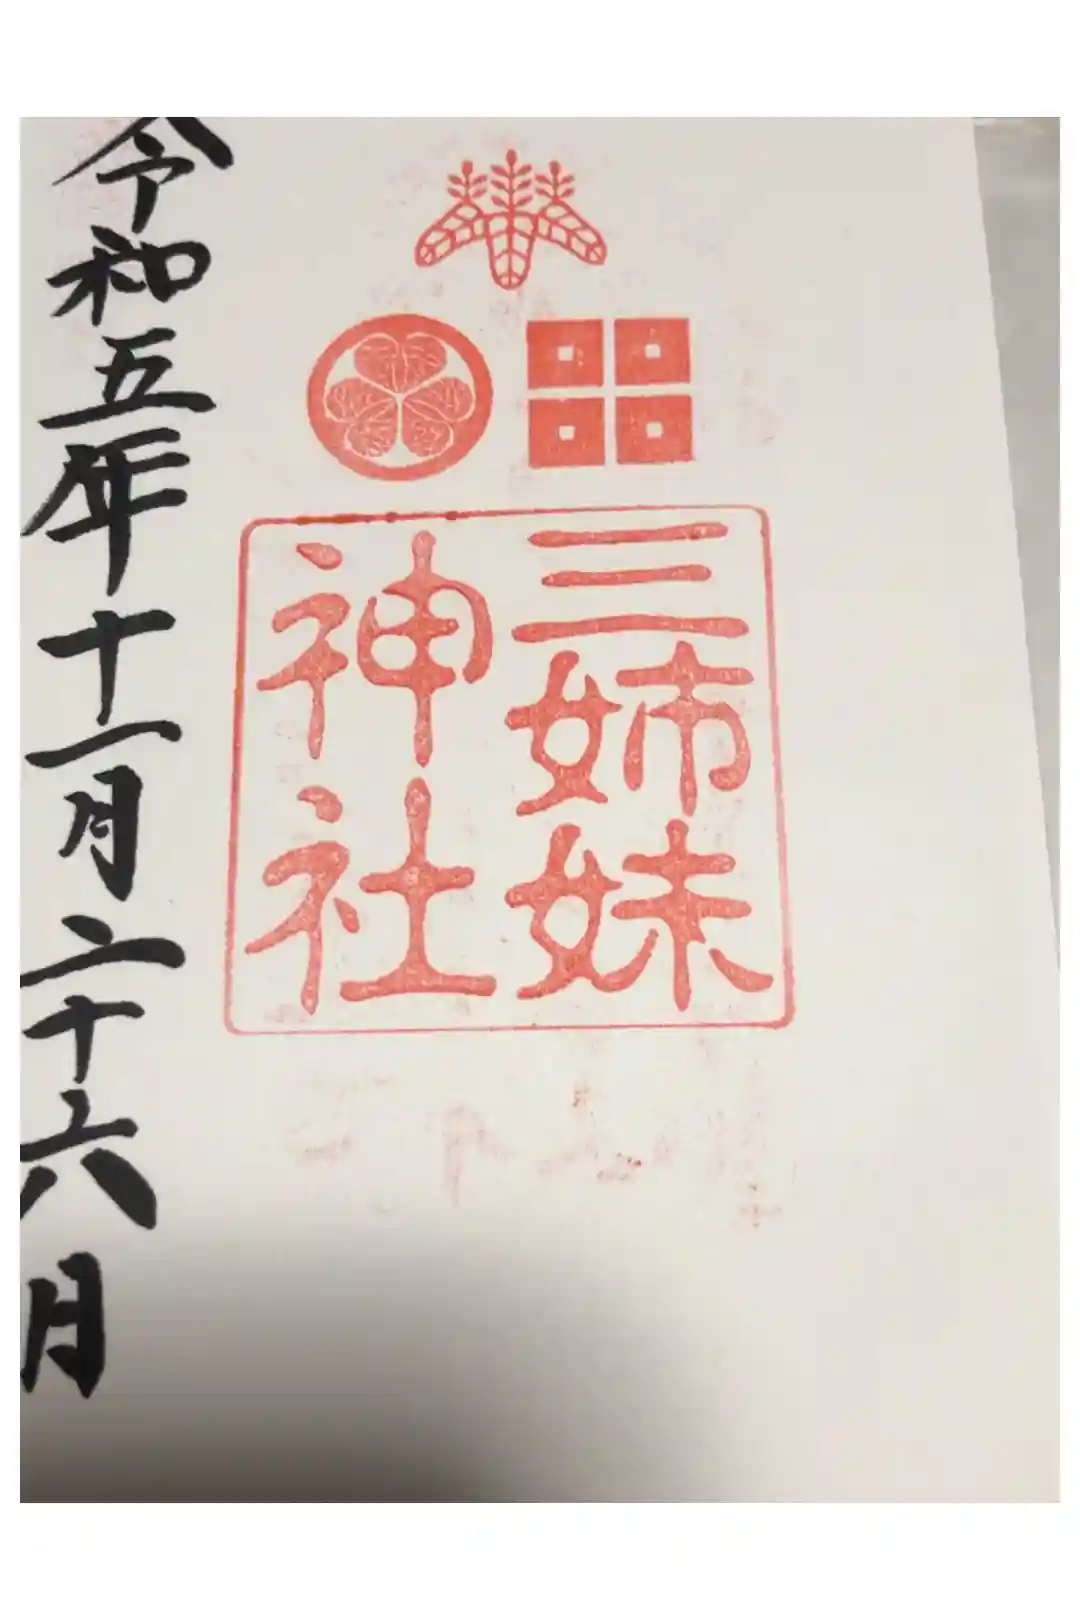 三姉妹
神社
令和五年十一月二十六日